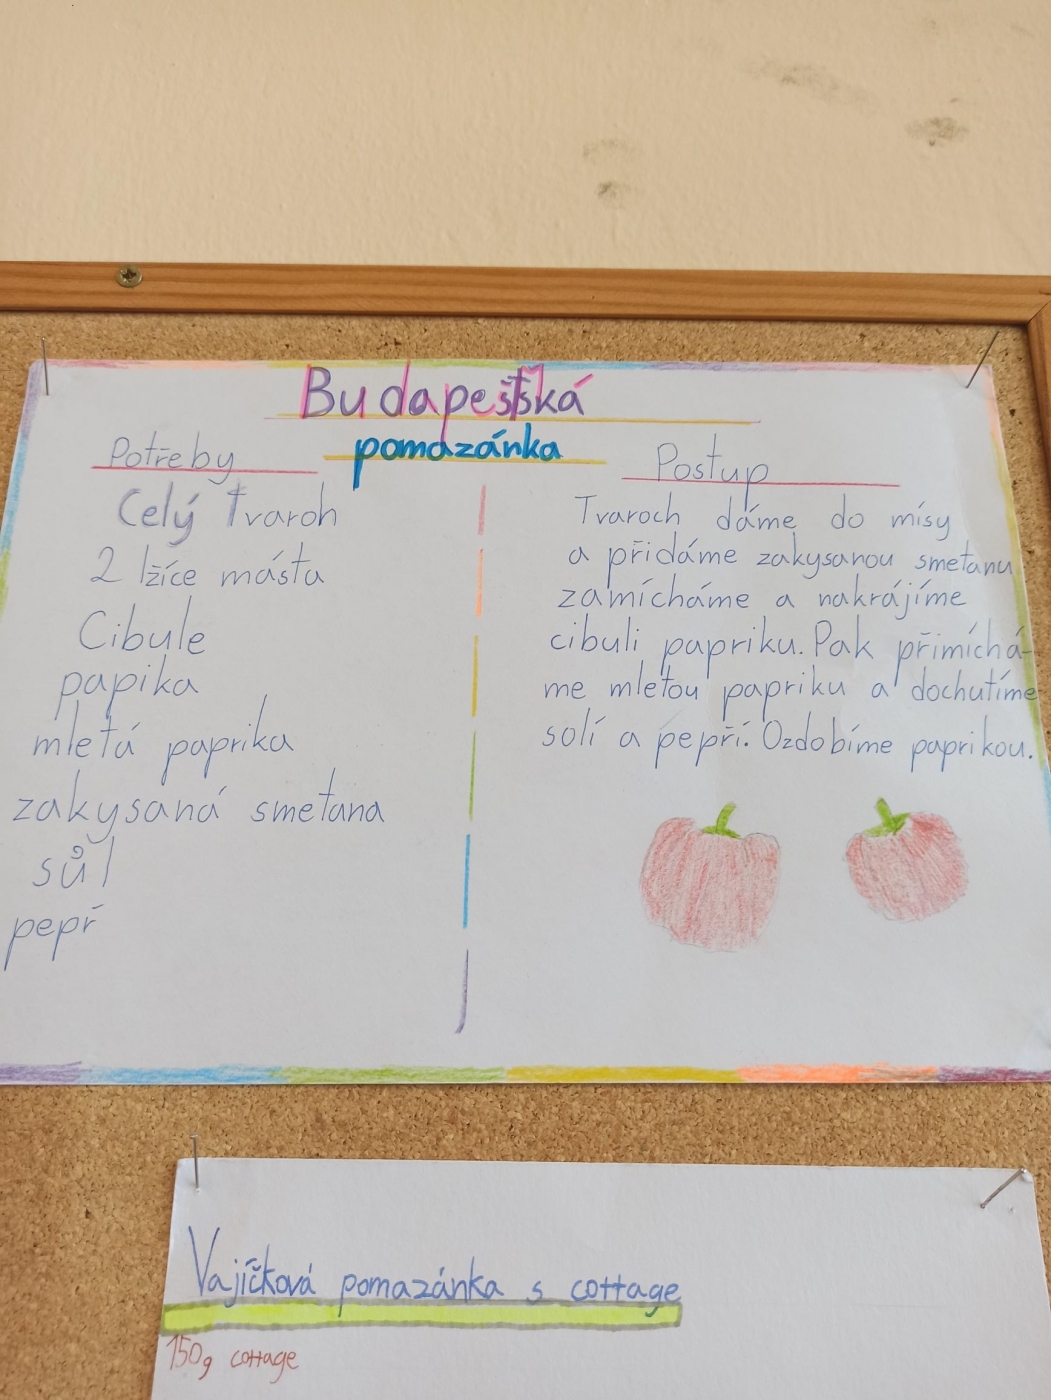 Budapešťská
pomazánka
Potřeby
Celý Tvaroh
2 lžíce másta
Cibule
papika
mletá paprika
zakysaná smetana
sůl
pepř
Postup
Tvaroch dáme do mísy
a přidáme zakysanou smetanu
zamícháme a nakrájíme
cibuli papriku. Pak přimíchá-
me mletou papriku a dochutíme
solí a pepří. Ozdobíme paprikou.
Vajíčková pomazánka s cottage
150g cottage